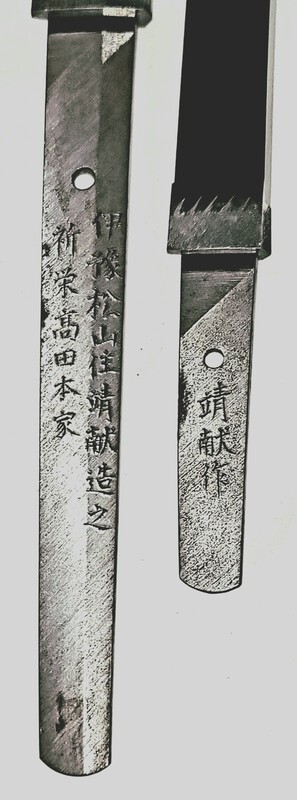 伊豫松山住靖献造之
祈栄髙田本家
靖献作